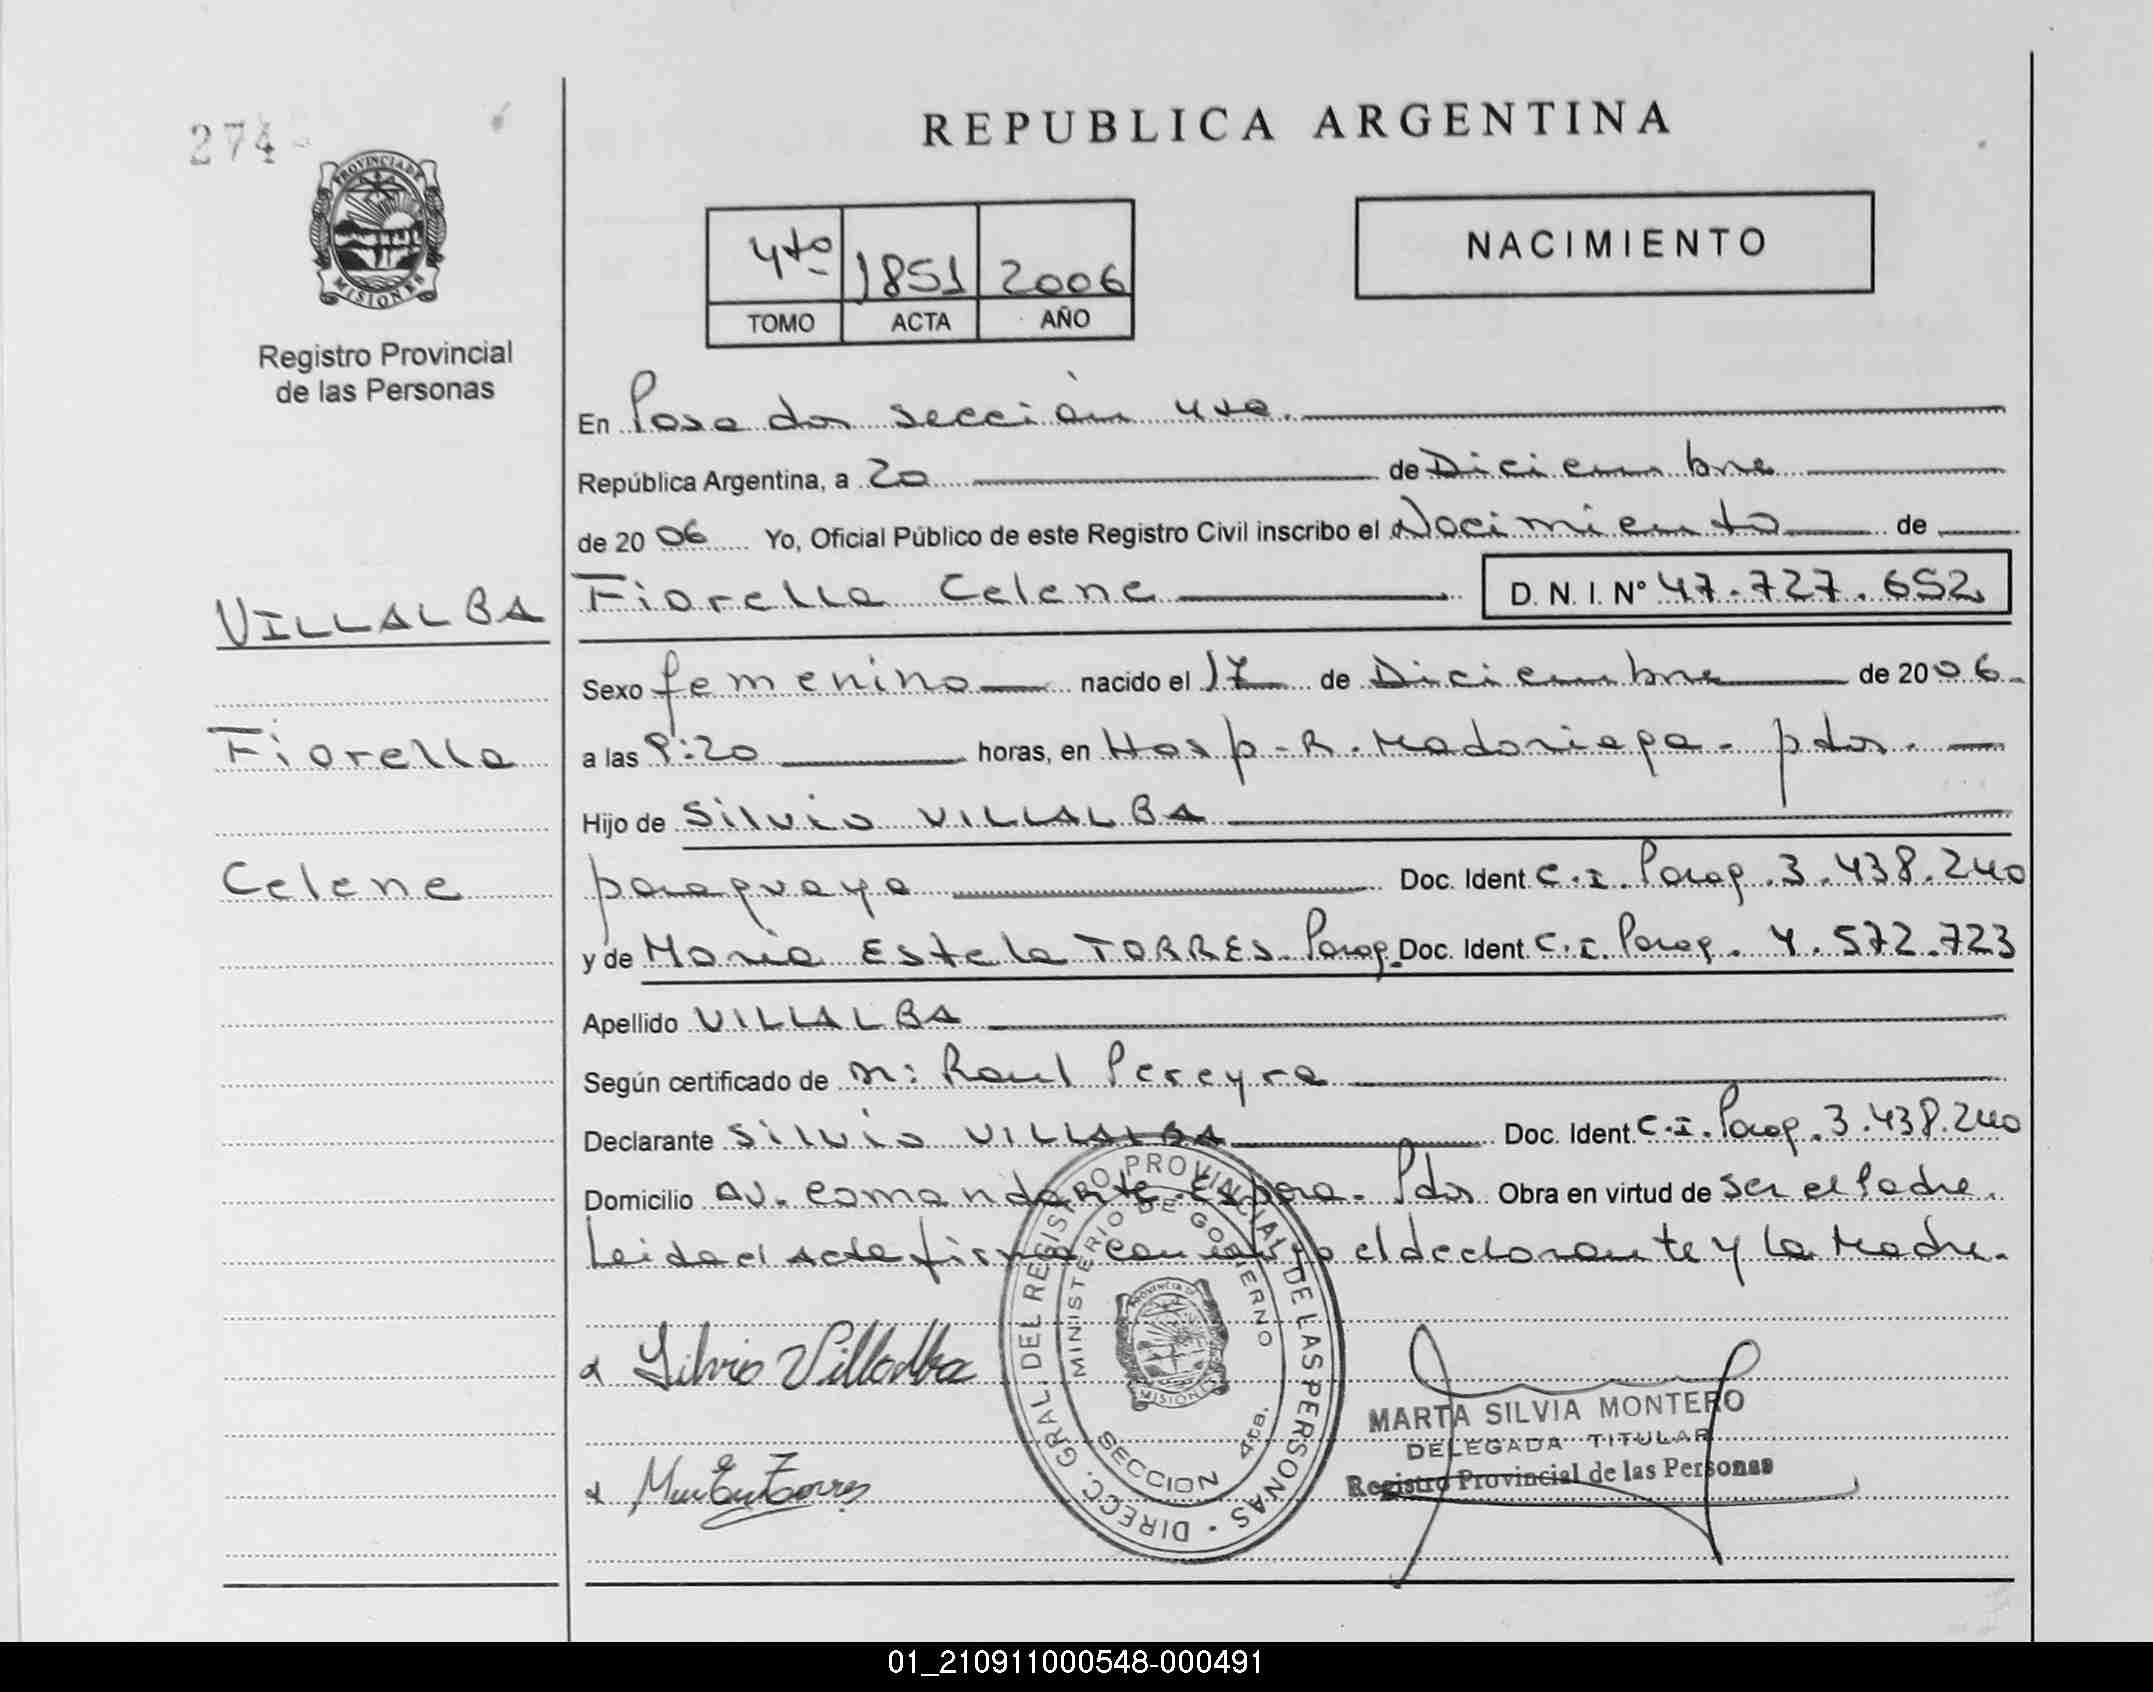 REPUBLICA ARGENTINA
274
PROVINCIA DE
MISIONES
Registro Provincial
de las Personas
4to 1851 2006
TOMO ACTA AÑO
NACIMIENTO
En Posadas sección 4ta.
República Argentina, a 20 de Diciembre
de 2006 Yo, Oficial Público de este Registro Civil inscribo el Nacimiento de
VILLALBA
Fiorella Celene D.N.I. Nº 47.727.652
Sexo femenino nacido el 17 de Diciembre de 2006.
Fiorella
a las 9:20 horas, en Hosp. R. Madariaga. pdas.
Hijo de Silvio VILLALBA
Celene
paraguayo Doc. Ident. C.I. Parag. 3.438.240
y de Maria Estela TORRES. Parag. Doc. Ident. C.I. Parag. 4.572.723
Apellido VILLALBA
Según certificado de Raul Pereyra
Declarante Silvio VILLALBA Doc. Ident. C.I. Parag. 3.438.240
Domicilio Av. Comandante Espora. Pdas Obra en virtud de ser el Padre.
Leida el Acta firma conmigo el declarante y la Madre.
Silvio Villalba
DIRECC. GRAL. DEL REGISTRO PROVINCIAL DE LAS PERSONAS
MINISTERIO DE GOBIERNO
PROVINCIA DE
MISIONES
SECCION 4ta.
MARTA SILVIA MONTERO
DELEGADA TITULAR
Registro Provincial de las Personas
Torres
01_210911000548-000491